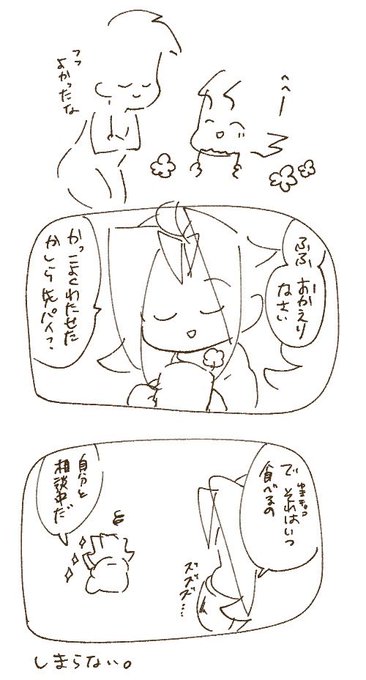 へへー
フッ
よかったな
ふふ
おかえり
なさい
かっこよくわたせた
かしら先パイ?
で
それはいつ
食べるの
ズズズ…
自分と
相談中だ
しまらない。